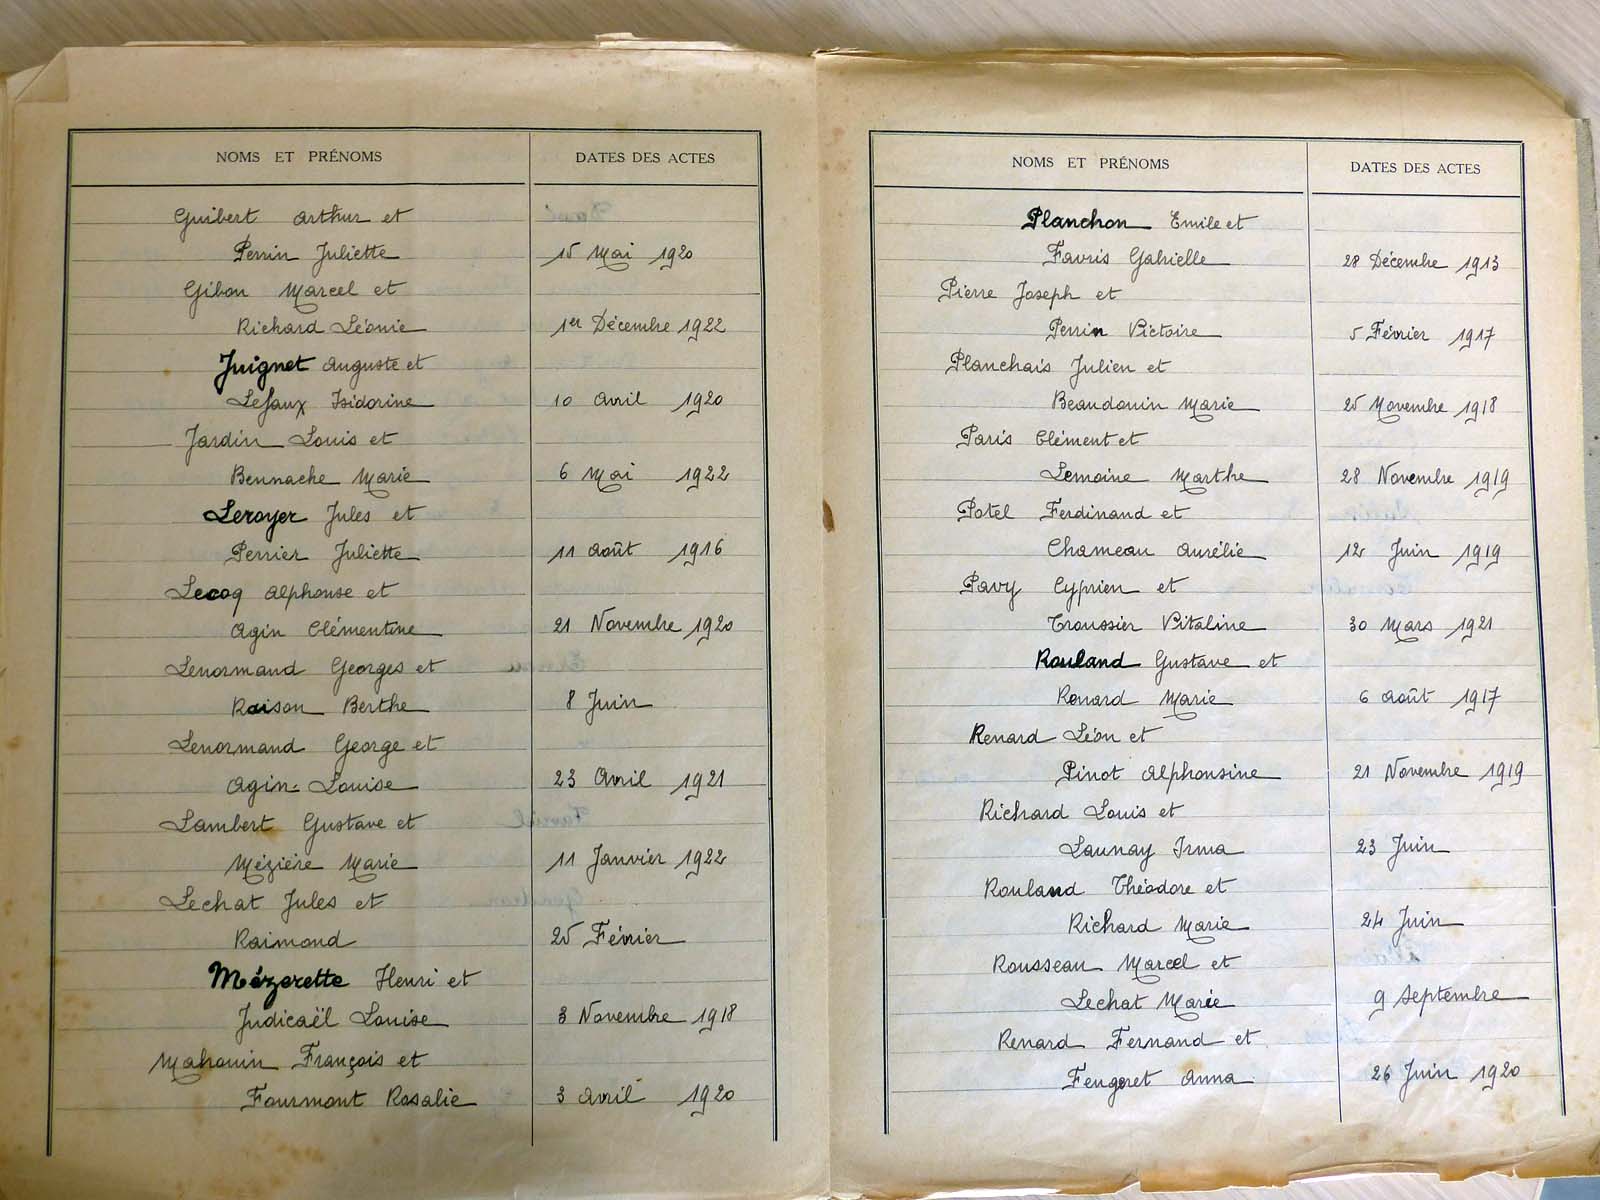 NOMS ET PRÉNOMS DATES DES ACTES
Guibert Arthur et
Perrin Juliette 15 Mai 1920
Gibon Marcel et
Richard Léonie 1er Décembre 1922
Juignet Auguste et
Lefaux Isidorine 10 Avril 1920
Jardin Louis et
Bennache Marie 6 Mai 1922
Leroyer Jules et
Perrier Juliette 11 Août 1916
Lecoq Alphonse et
Agin Clémentine 21 Novembre 1920
Lenormand Georges et
Raison Berthe 8 Juin
Lenormand George et
Agin Louise 23 Avril 1921
Lambert Gustave et
Mézière Marie 11 Janvier 1922
Lechat Jules et
Raimond 25 Février
Mézerette Henri et
Judicaël Louise 3 Novembre 1918
Mahouin François et
Fourmont Rosalie 3 Avril 1920
NOMS ET PRÉNOMS DATES DES ACTES
Planchon Emile et
Favris Gabrielle 28 Décembre 1913
Pierre Joseph et
Perrin Victoire 5 Février 1917
Planchais Julien et
Beaudouin Marie 25 Novembre 1918
Paris Clément et
Lemoine Marthe 28 Novembre 1919
Potel Ferdinand et
Chameau Aurélie 12 Juin 1919
Pavy Cyprien et
Troussier Vitaline 30 Mars 1921
Rouland Gustave et
Renard Marie 6 Août 1917
Renard Léon et
Pinot Alphonsine 21 Novembre 1919
Richard Louis et
Launay Irma 23 Juin
Rouland Théodore et
Richard Marie 24 Juin
Rousseau Marcel et
Lechat Marie 9 Septembre
Renard Fernand et
Feugeret Anna 26 Juin 1920